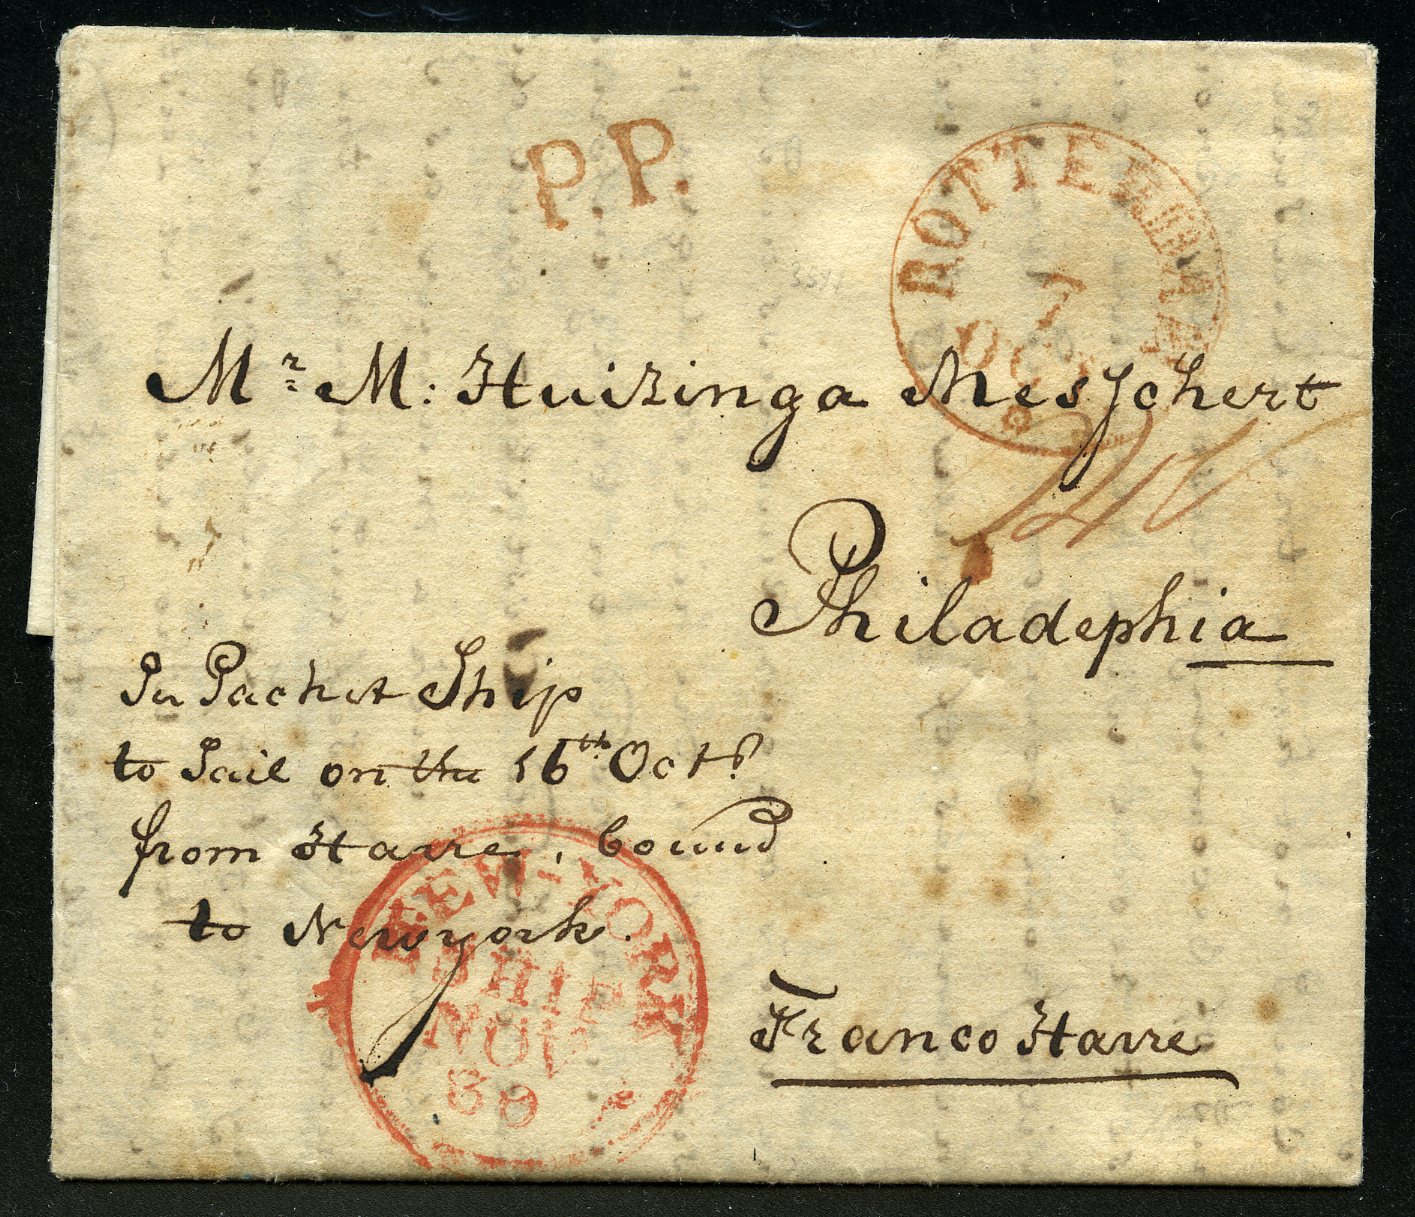 P.P.
ROTTERDAM
7
OCT
Mr M: Huizinga Messchert
Philadephia
Pr Packet Ship
to Sail on the 16th Octr
from Havre, bound
to Newyork.
NEW-YORK
SHIP
NOV
30
Franco Havre